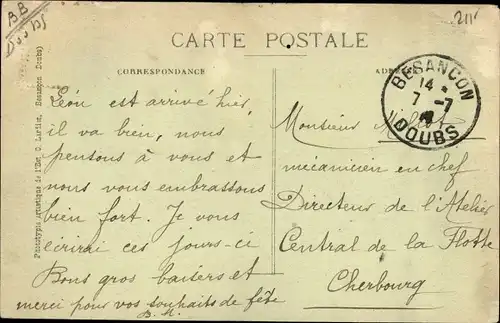 BB
DOUBS
211
CARTE POSTALE
CORRESPONDANCE
BESANÇON
14 *
7 -7
DOUBS
Phototypie artistique de l'Est, C. Lardier, Besançon (Doubs)
Léon est arrivé hier,
il va bien, nous
pensons à vous et
nous vous embrassons
bien fort. Je vous
écrirai ces jours-ci
Bons gros baisers et
merci pour vos souhaits de fête
B. M.
Monsieur
mécanicien en chef
Directeur de l'Atelier
Central de la Flotte
Cherbourg